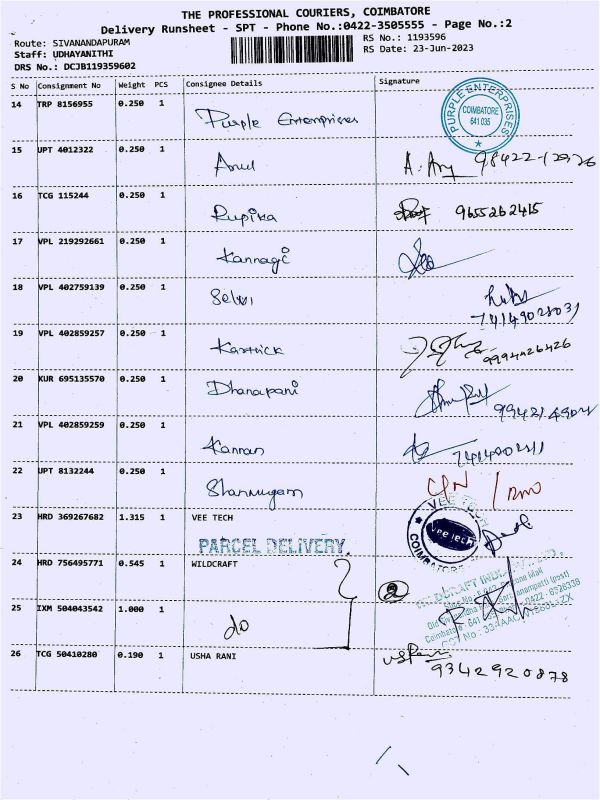 THE PROFESSIONAL COURIERS, COIMBATORE
Delivery Runsheet - SPT - Phone No.:0422-3505555 - Page No.:2
Route: SIVANANDAPURAM
RS No.: 1193596
Staff: UDHAYANITHI
RS Date: 23-Jun-2023
DRS No.: DCJB119359602
S No Consignment No Weight PCS Consignee Details Signature
14 TRP 8156955 0.250 1 Purple Enterprises
PURPLE ENTERPRISES
COIMBATORE
641 035
15 UPT 4012322 0.250 1 Arul
16 TCG 115244 0.250 1 Rupika 9655262415
17 VPL 219292661 0.250 1 Kannagi
18 VPL 402759139 0.250 1 Selvi
19 VPL 402859257 0.250 1 Karthick
9994426426
20 KUR 695135570 0.250 1 Dhanapani
21 VPL 402859259 0.250 1 Kannan
22 UPT 8132244 0.250 1 Shanmugam
23 HRD 369267682 1.315 1 VEE TECH
VEE TECH
Vee tech
COIMBATORE
PARCEL DELIVERY.
24 HRD 756495771 0.545 1 WILDCRAFT
2
25 IXM 504043542 1.000 1 do
26 TCG 50410280 0.190 1 USHA RANI
9342920878